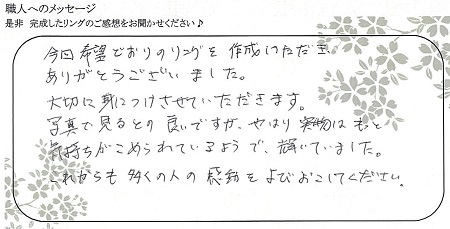 職人へのメッセージ
是非 完成したリングのご感想をお聞かせください♪
今回希望どおりのリングを作成いただき、
ありがとうございました。
大切に身につけさせていただきます。
写真で見るとの良いですが、やはり実物はもっと
気持ちがこめられているようで、輝いていました。
これからも多くの人の感動をよびおこしてください。